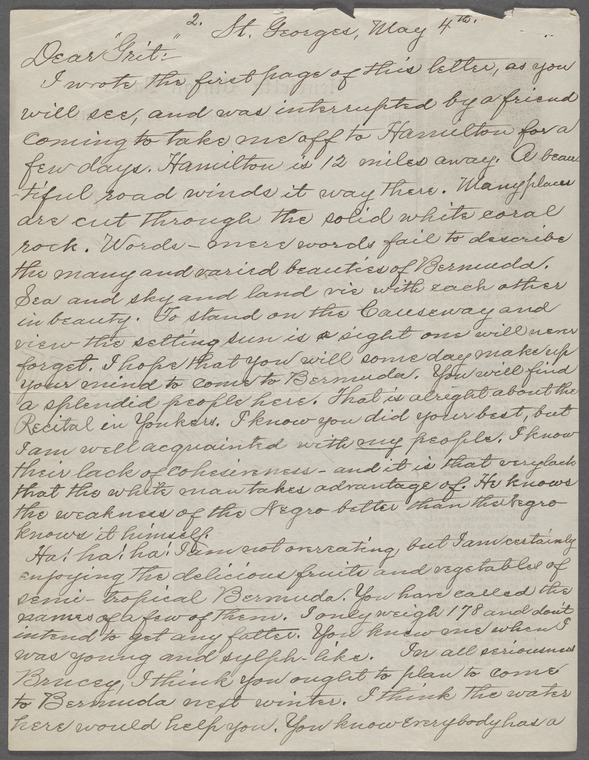 2. St. Georges, May 4th.
Dear "Grit:"
I wrote the first page of this letter, as you
will see, and was interrupted by a friend
coming to take me off to Hamilton for a
few days. Hamilton is 12 miles away. A beau-
tiful road winds it way there. Many places
are cut through the solid white coral
rock. Words - mere words fail to describe
the many and varied beauties of Bermuda.
Sea and sky and land vie with each other
in beauty. To stand on the Causeway and
view the setting sun is a sight one will never
forget. I hope that you will some day make up
your mind to come to Bermuda. You will find
a splendid people here. That is alright about the
Recital in Yonkers. I know you did your best, but
I am well acquainted with my people. I know
their lack of cohesiveness - and it is that very lack
that the white man takes advantage of. He knows
the weakness of the Negro better than the Negro
knows it himself.
Ha! ha! ha! I am not overeating, but I am certainly
enjoying the delicious fruits and vegetables of
semi-tropical Bermuda. You have called the
names of a few of them. I only weigh 178 and don't
intend to get any fatter. You knew me when I
was young and sylph-like. In all seriousness
Brucey, I think you ought to plan to come
to Bermuda next winter. I think the water
here would help you. You know everybody has a